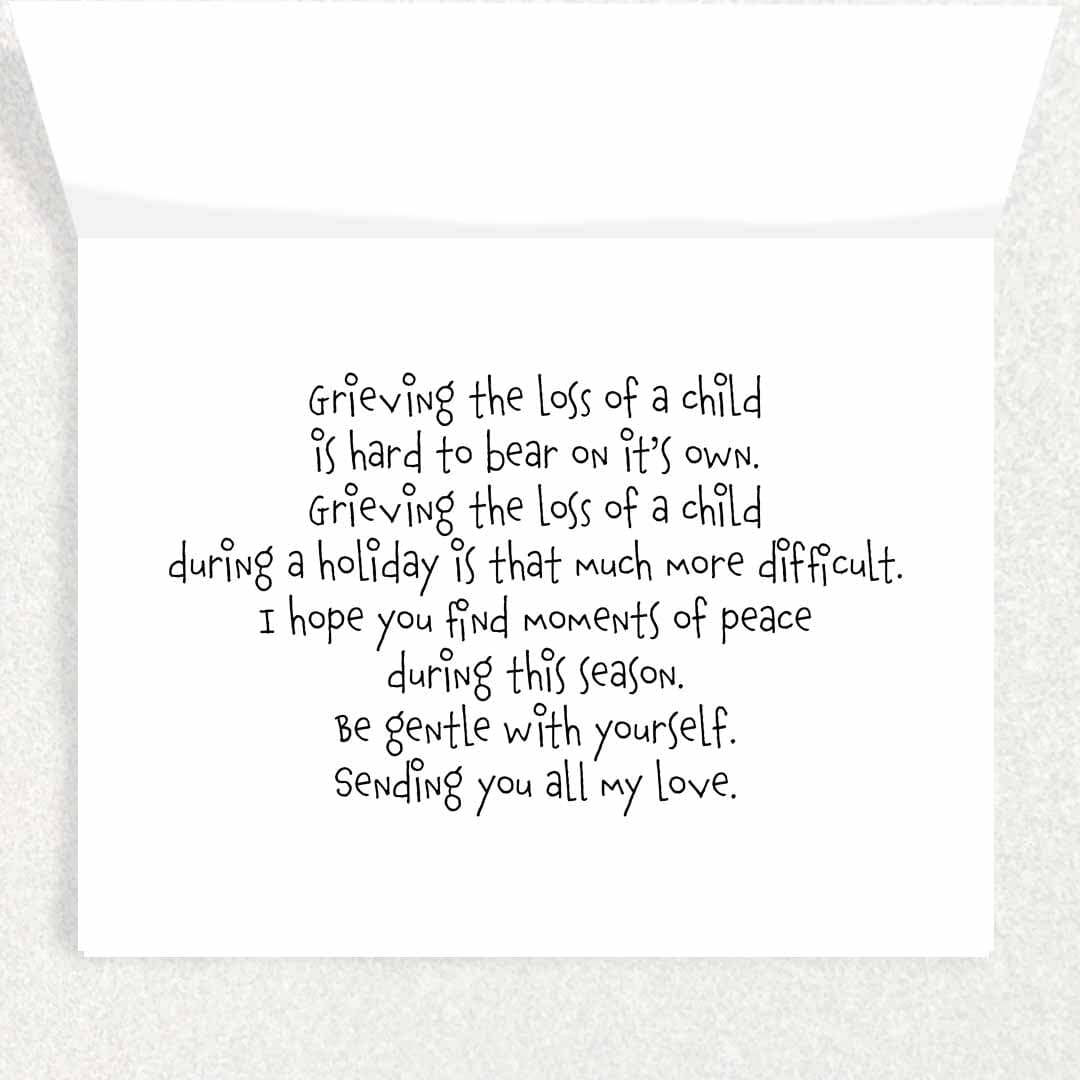 Grieving the loss of a child
is hard to bear on it's own.
Grieving the loss of a child
during a holiday is that much more difficult.
I hope you find moments of peace
during this season.
Be gentle with yourself.
Sending you all my love.